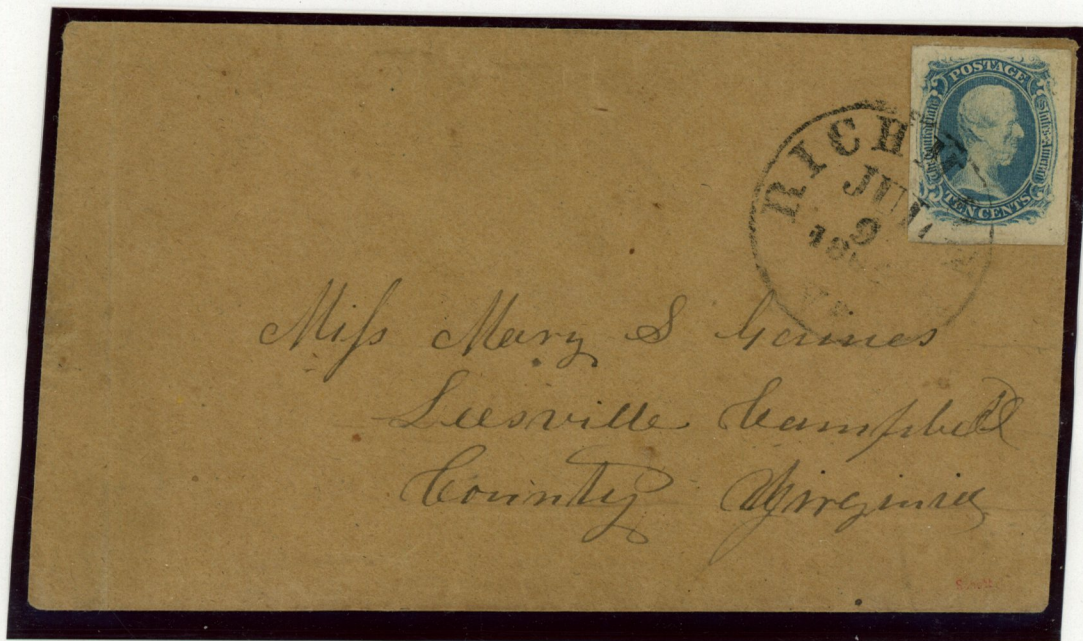 POSTAGE
TEN CENTS
RICHM
JUL
9
18
Va.
Miss Mary S Gaines
Leesville Campbell
County Virginia